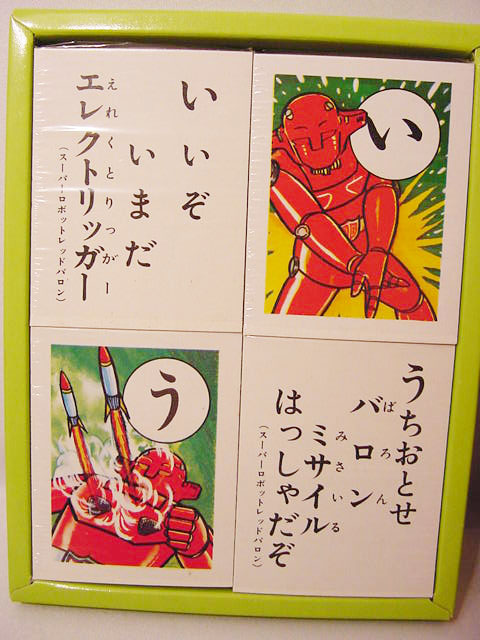 いいぞ
いまだ
エレクトリッガー
えれくとりっがー
(スーパーロボットレッドバロン)
い
う
うちおとせ
バロン
ばろん
ミサイル
みさいる
はっしゃだぞ
(スーパーロボットレッドバロン)